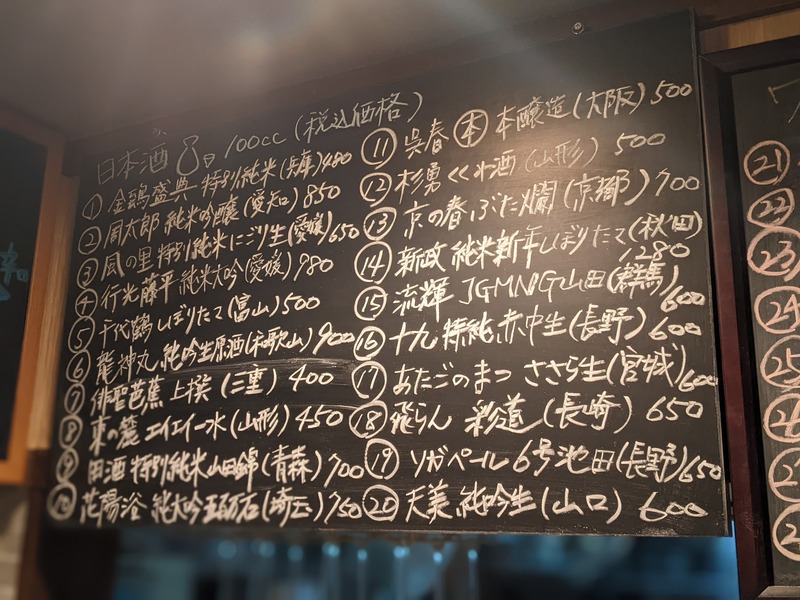 日本酒 100cc (税込価格)
① 金鵄盛典 特別純米 (兵庫) 480
② 周太郎 純米吟醸 (愛知) 850
③ 風の里 特別純米にごり生 (愛媛) 650
④ 行光藤平 純米大吟 (愛媛) 980
⑤ 千代鶴 しぼりたて (富山) 500
⑥ 龍神丸 純吟生原酒 (和歌山) 900
⑦ 俳聖芭蕉 上撰 (三重) 400
⑧ 東の麓 エイエイ一水 (山形) 450
⑨ 田酒 特別純米山田錦 (青森) 700
⑩ 花陽浴 純大吟五百万石 (埼玉) 750
⑪ 呉春 本 本醸造 (大阪) 500
⑫ 杉勇 くくわ酒 (山形) 500
⑬ 京の春 ぶた爛 (京都) 700
⑭ 新政 純米新年しぼりたて (秋田) 1280
⑮ 流輝 JGMNG山田 (群馬) 600
⑯ 十九 特純 赤中生 (長野) 600
⑰ あたごのまつ ささら生 (宮城) 600
⑱ 飛らん 彩道 (長崎) 650
⑲ ソガペール 6号池田 (長野) 650
⑳ 天美 純吟生 (山口) 600
㉑
㉒
㉓
㉔
㉕